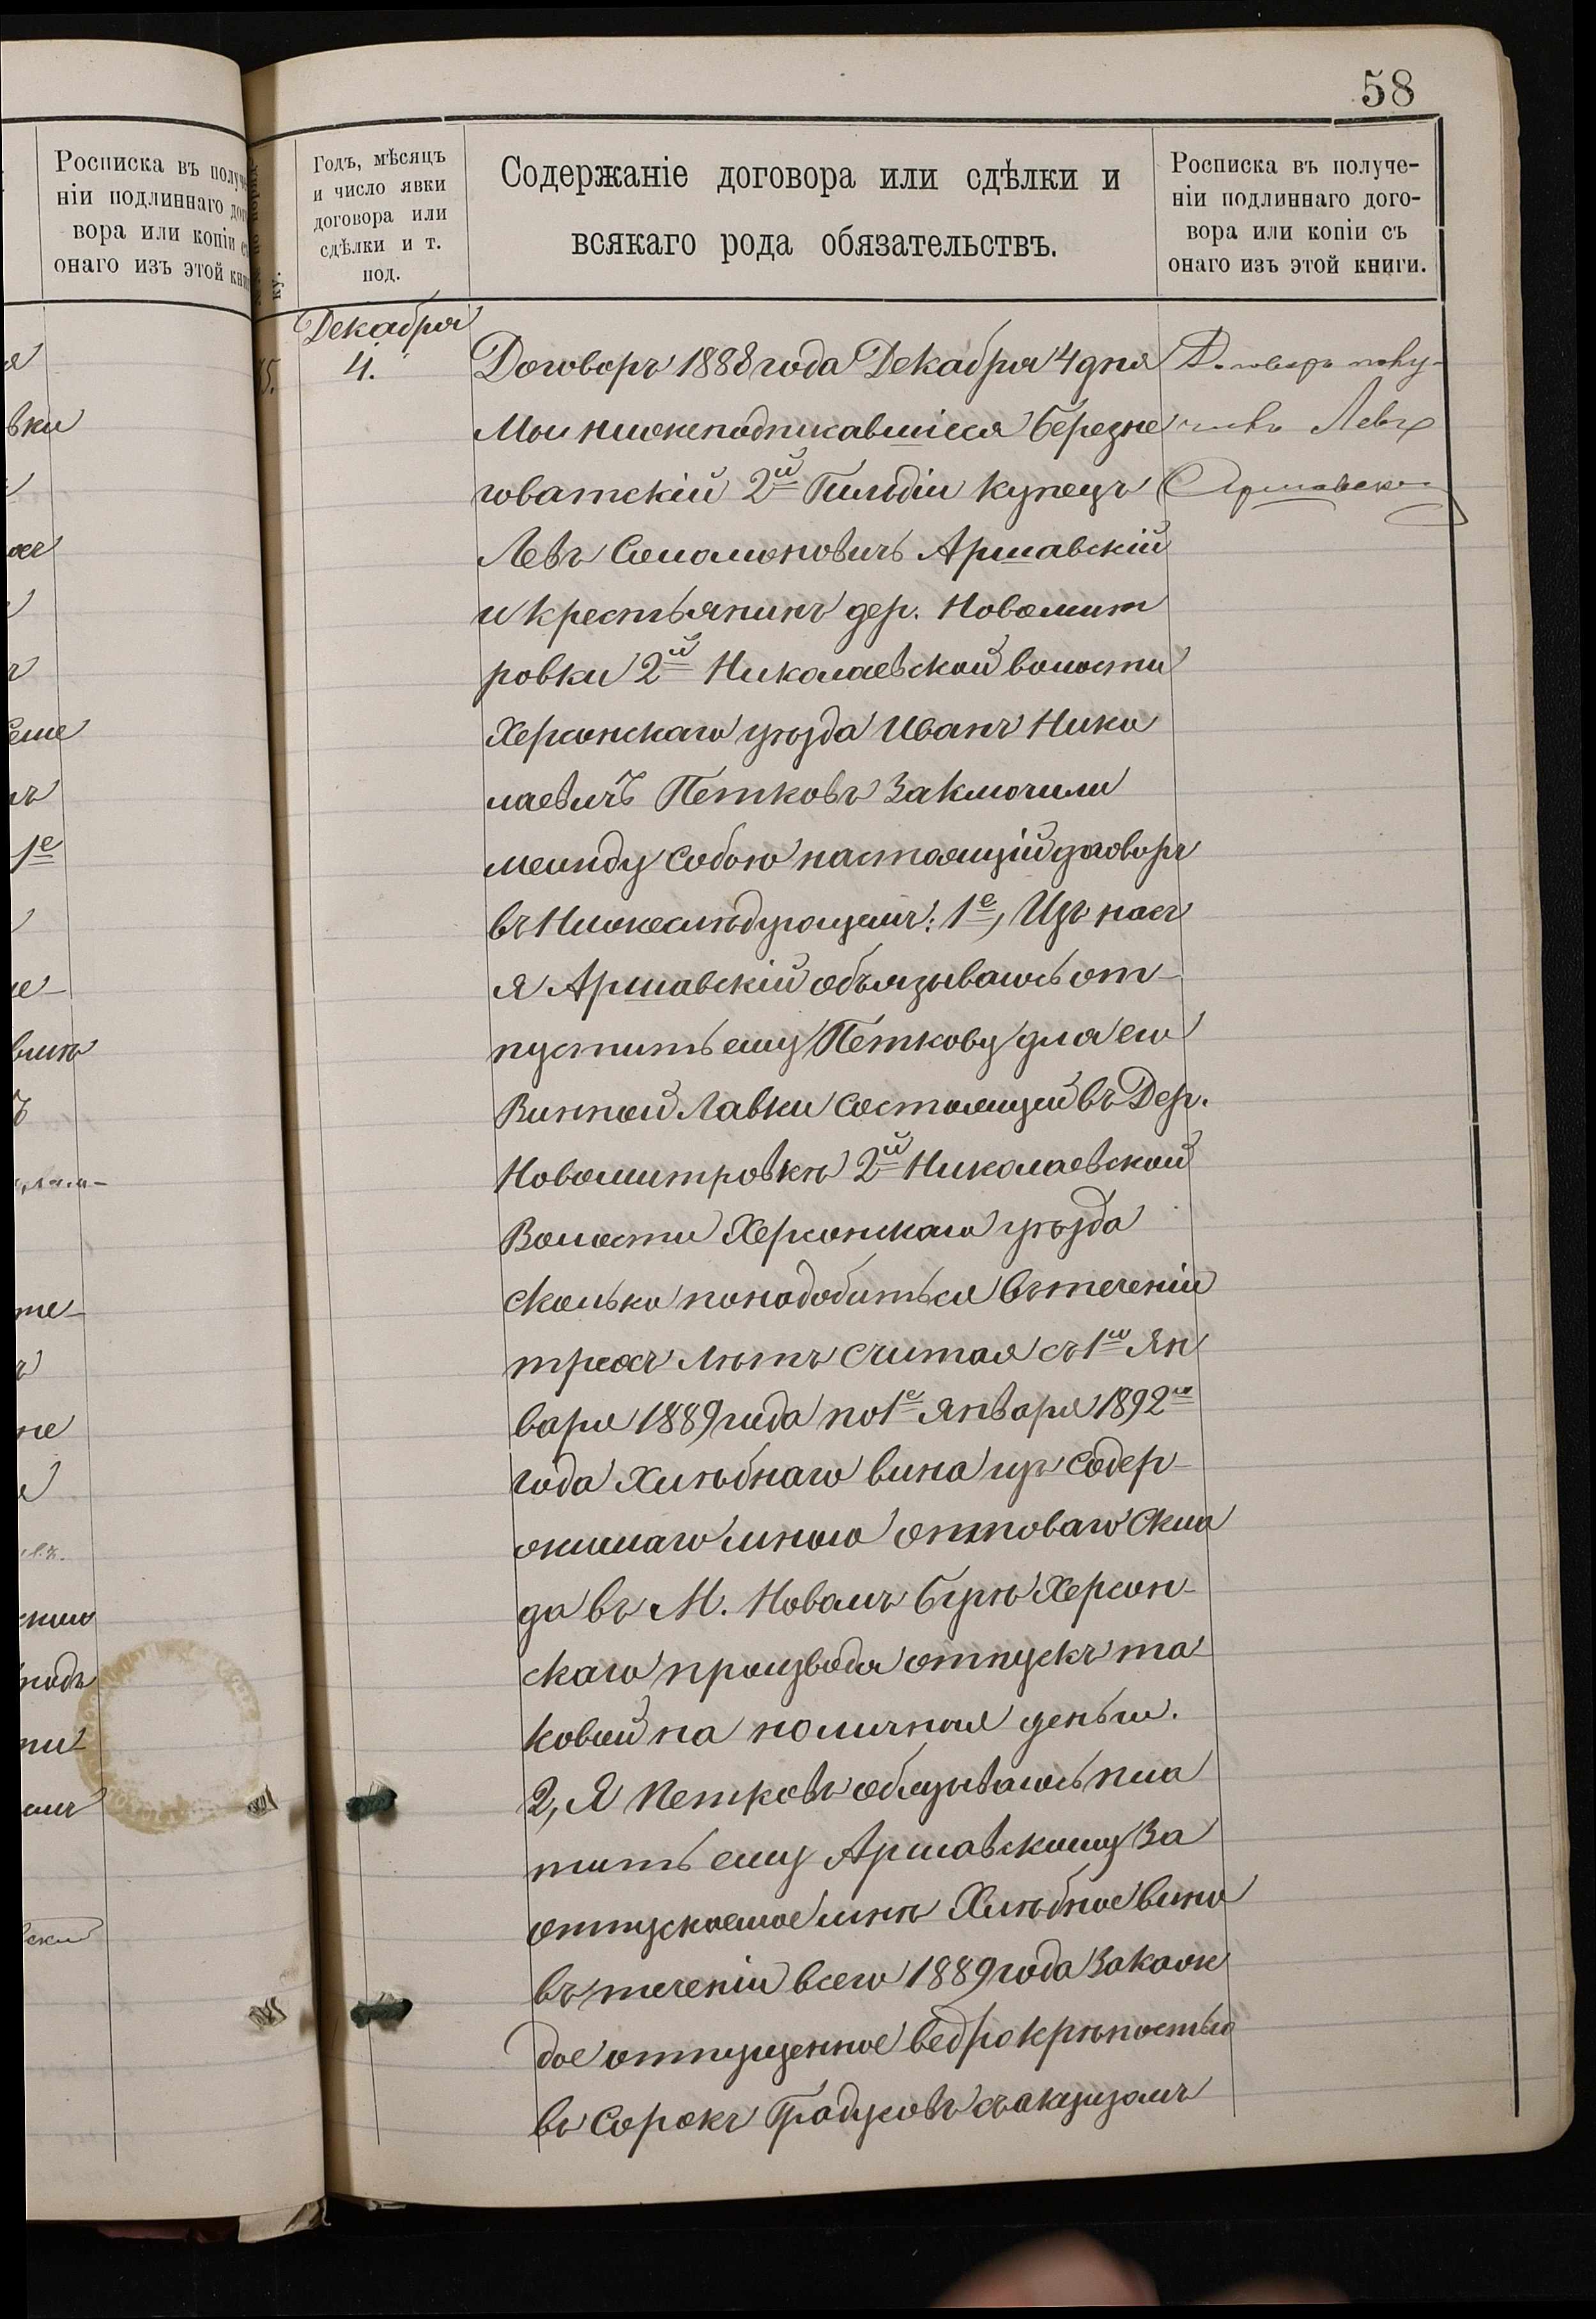 58
Росписка въ получе-
ніи подлиннаго дого-
вора или копіи съ
онаго изъ этой книги
Годъ, мѣсяцъ
и число явки
договора или
сдѣлки и т.
под.
Содержаніе договора или сдѣлки и
всякаго рода обязательствъ.
Росписка въ получе-
ніи подлиннаго дого-
вора или копіи съ
онаго изъ этой книги.
Декабря
4.
Договоръ 1888 года Декабря 4 дня
Мы нижеподписавшіеся Березне
говатскій 2й Гильдіи купецъ
Левъ Соломоновичъ Аршавскій
и крестьянинъ дер. Новомит
ровки 2й Николаевской волости
Херсонскаго уѣзда Иванъ Нико
лаевичъ Петковъ Заключили
между собою настоящій договоръ
въ Нижеслѣдующемъ: 1е, Изъ насъ
я Аршавскій объязываюсь от-
пустить ему Петкову для его
Винной Лавки состоящей въ Дер.
Новомитровкѣ 2й Николаевской
Волости Херсонскаго уѣзда
сколько понадобиться въ теченіи
трехъ лѣтъ считая съ 1го Ян
варя 1889 года по 1е Января 1892го
года Хлѣбнаго вина изъ содер-
жимаго мною оптоваго Скла
да въ М. Новомъ Бугѣ Херсон-
скаго производя отпускъ та-
ковой на наличныя деньги.
2, Я Петковъ обязываюсь пла
тить ему Аршавскому За
отпускаемое мнѣ Хлѣбное вино
въ теченіи всего 1889 года За каж
дое отпущенное ведро крѣпостью
въ Сорокъ Градусовъ съ акцизомъ
Договоръ полу-
чилъ Левъ
Аршавскій